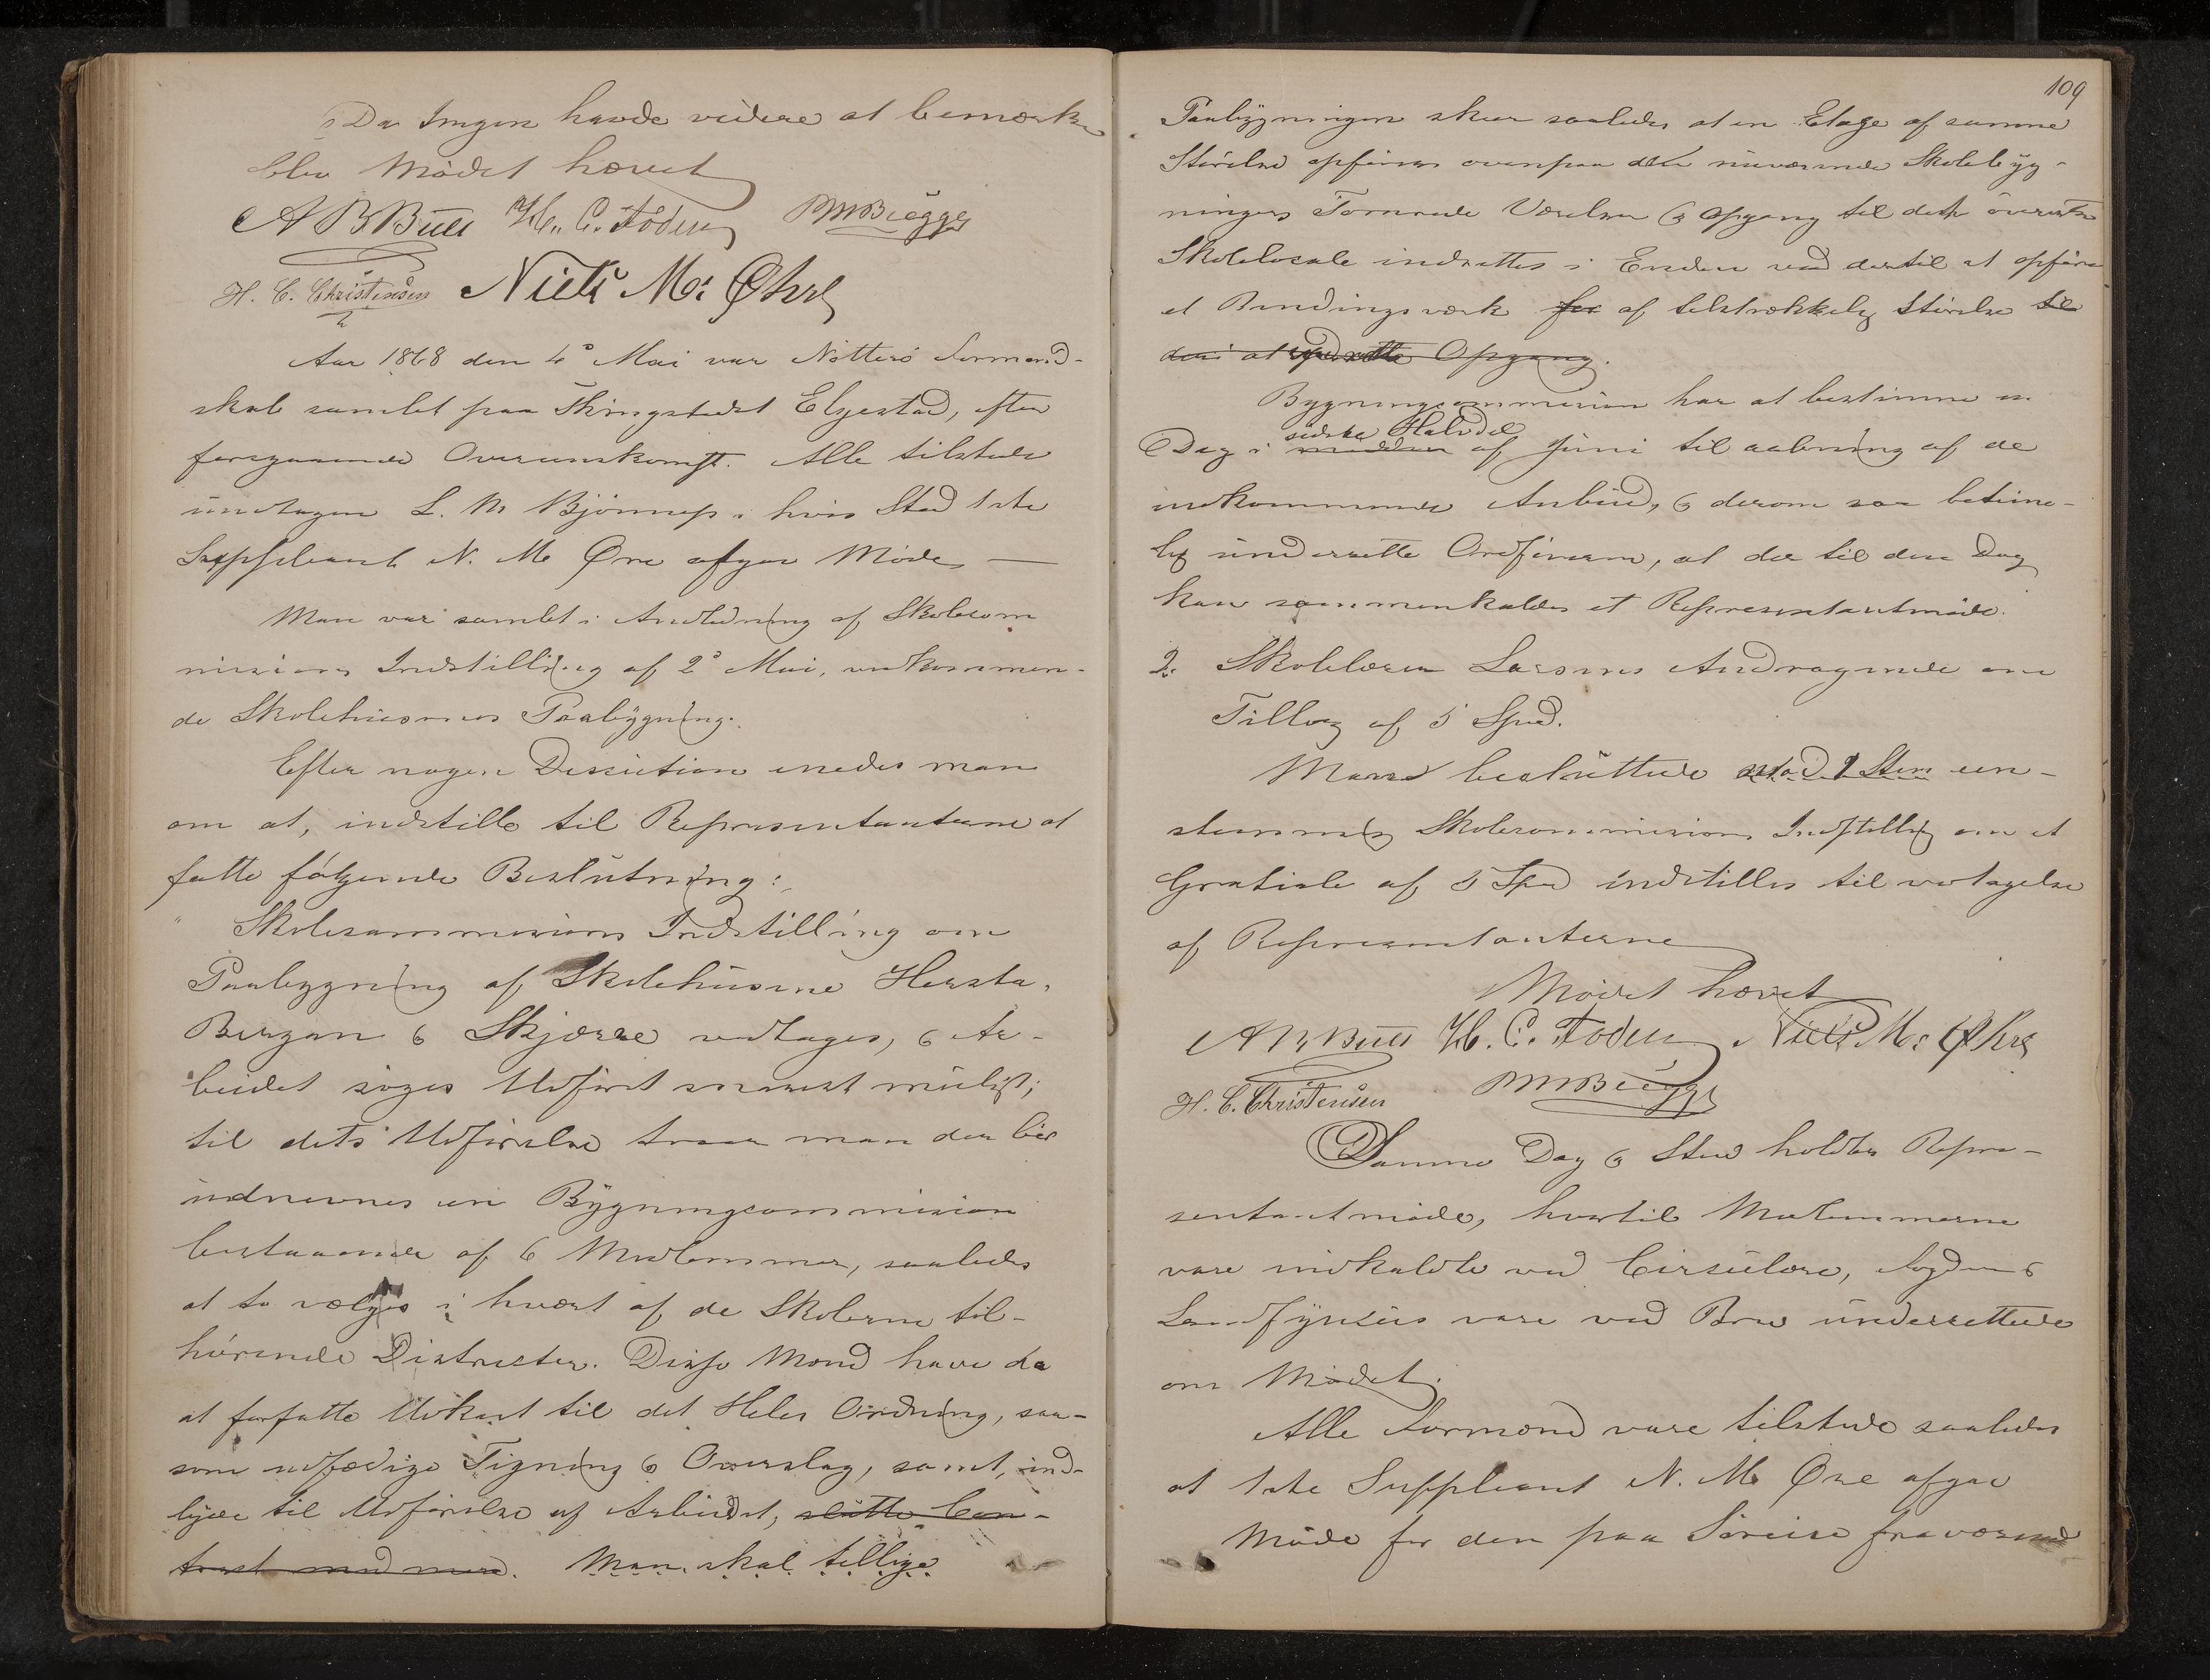 Da Ingen havde videre at bemærke
blev Mødet hævet
A B Bull H. C. Foden
H. C. Christensen Niels M: Øhre
Aar 1868 den 4° Mai var Nøtterö Formand-
skab samlet paa Thingstedet Elgestad, efter
foregaaende Overenskomst. Alle tilstede
undtagen L. M Bjönness i hvis Sted 1ste
Suppleant N. M Øre afgav Møde —
Man var samlet i Anledning af Skolecom
missions Indstilling af 2° Mai, vedkommen-
de Skolehusenes Paabygning.
Efter nogen Discution enedes man
om at, indstille til Representanterne at
fatte følgende Beslutning:
" Skolecommissions Indstilling om
Paabygning af Skolehusene Hersta,
Bergan & Skjærve vedtages, & Ar-
beidet søges Udført snarest muligt;
til dets Udførelse troer man der bør
udnevnes en Bygningcommission
bestaaende af 6 Medlemmer, saaledes
at to vælges i hvært af de Skolerne til-
hørende Districter. Disse Mænd have da
at forfatte Udkast til det Heles Ordning, saa-
som udfærdige Tigning & Overslag, samt, ind-
byde til Udførelse af Arbeidet, slutte Con-
tract med mere. Man skal tillige
109
Paabygningen skeer saaledes at en Etage af samme
Størelse opføres ovenpaa den nuværende Skolebyg-
ningens Værelser & Opgang til det øverste
Skolelocale indrettes i Enden ved dertil at opføre
et Bindingsværk for af tilstrækkelig Størelse til
deri at indrette Opgang.
Bygningscommission har at bestimme en
sidste Halvdel
Dag i midten af Juni til aabning af de
indkommende Anbud, & derom saa betime-
lig underrette Ordføreren, at der til den Dag
kan sammenkaldes et Representantmøde.
2. Skolelærer Larsens Andragende om
Tillæg af 5 Spd.
Man besluttede mod 1 Stem een-
stemmig Skolecommissions Indstillig om et
Gratiale af 5 Spd indstilles til vedtagelse
af Representanterne
Mødet hævet
A B Bull H. C. Foden Niels M: Øhre
H. C. Christensen
Samme Dag & Sted holdtes Repre-
sentantmøde, hvortil Medlemmerne
vare indkaldte ved Circulære, Fogden &
Lensmanden vare ved Brev underrettede
om Mødet.
Alle Formænd vare tilstede saaledes
at 1ste Suppleant N. M Øre afgav
Møde for den paa Søreise fraværende